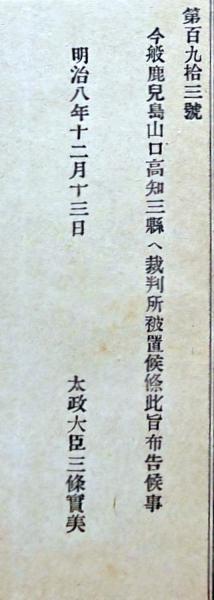 第百九拾三號
今般鹿兒島山口高知三縣ヘ裁判所被置候條此旨布告候事
明治八年十二月十三日
太政大臣三條實美